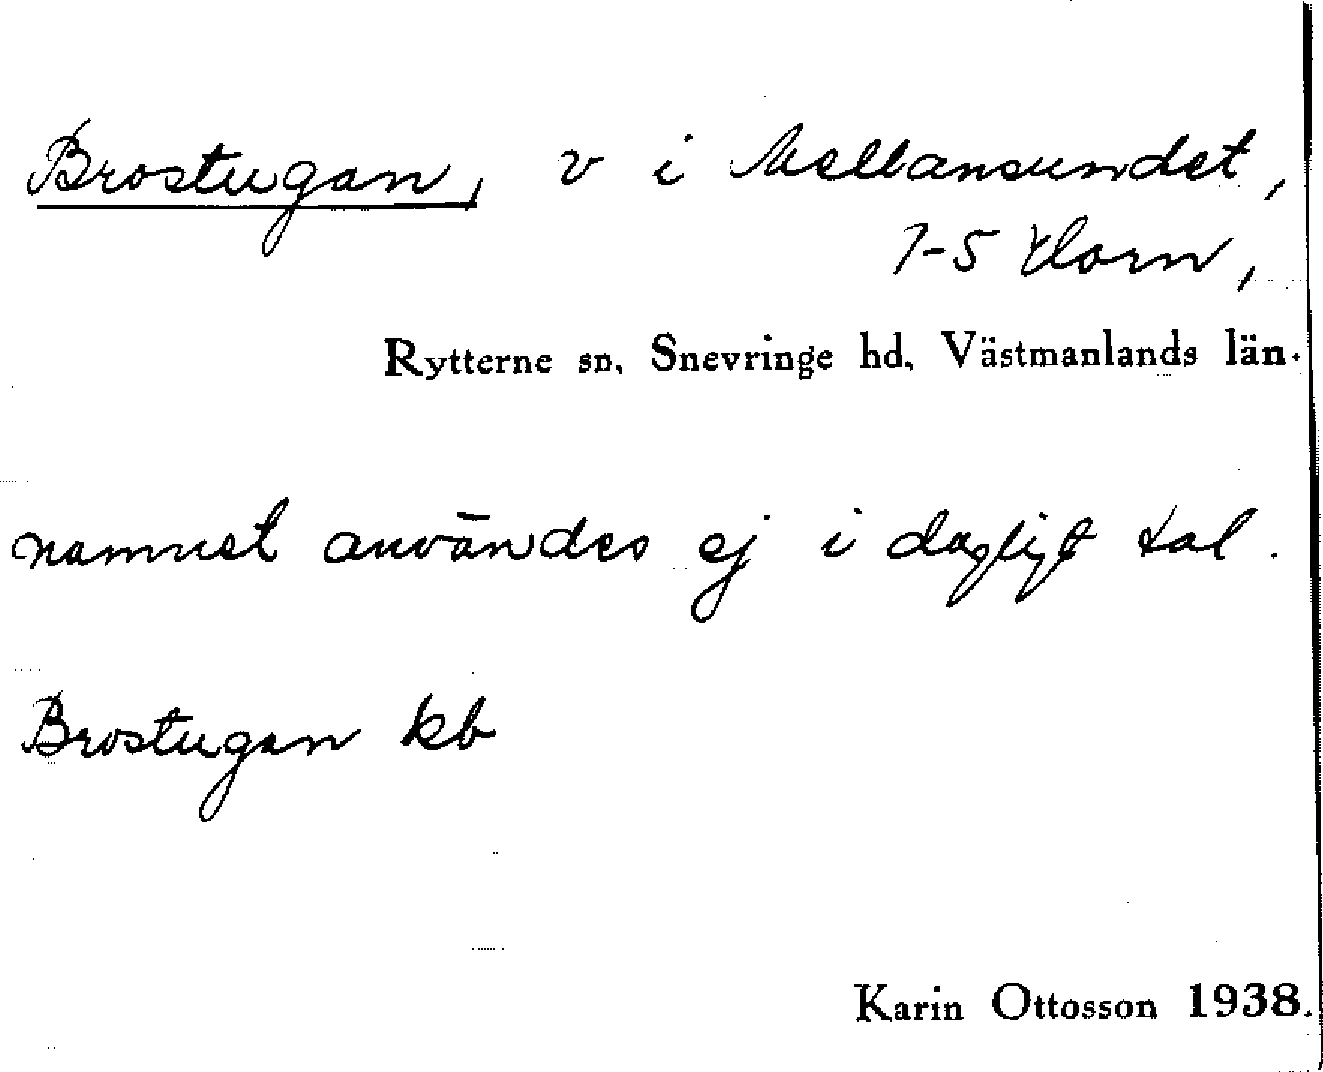 Brostugan, v i Mellansundet,
1-5 Horn,
Rytterne sn, Snevringe hd, Västmanlands län.
namnet användes ej i dagligt tal.
Brostugan kb
Karin Ottosson 1938.